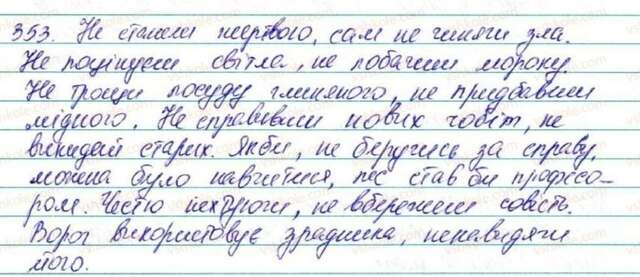 353. Не станеш жертвою, сам не чинячи зла.
Не поцінуєш світла, не побачиш мороку.
Не трощи посуду глиняного, не придбавши
мідного. Не справивши нових чобіт, не
викидай старих. Якби, не беручись за справу,
можна було навчитися, пес став би професо-
ром. Честю нехтуючи, не вбережеш совість.
Ворог використовує зрадника, ненавидячи
його.